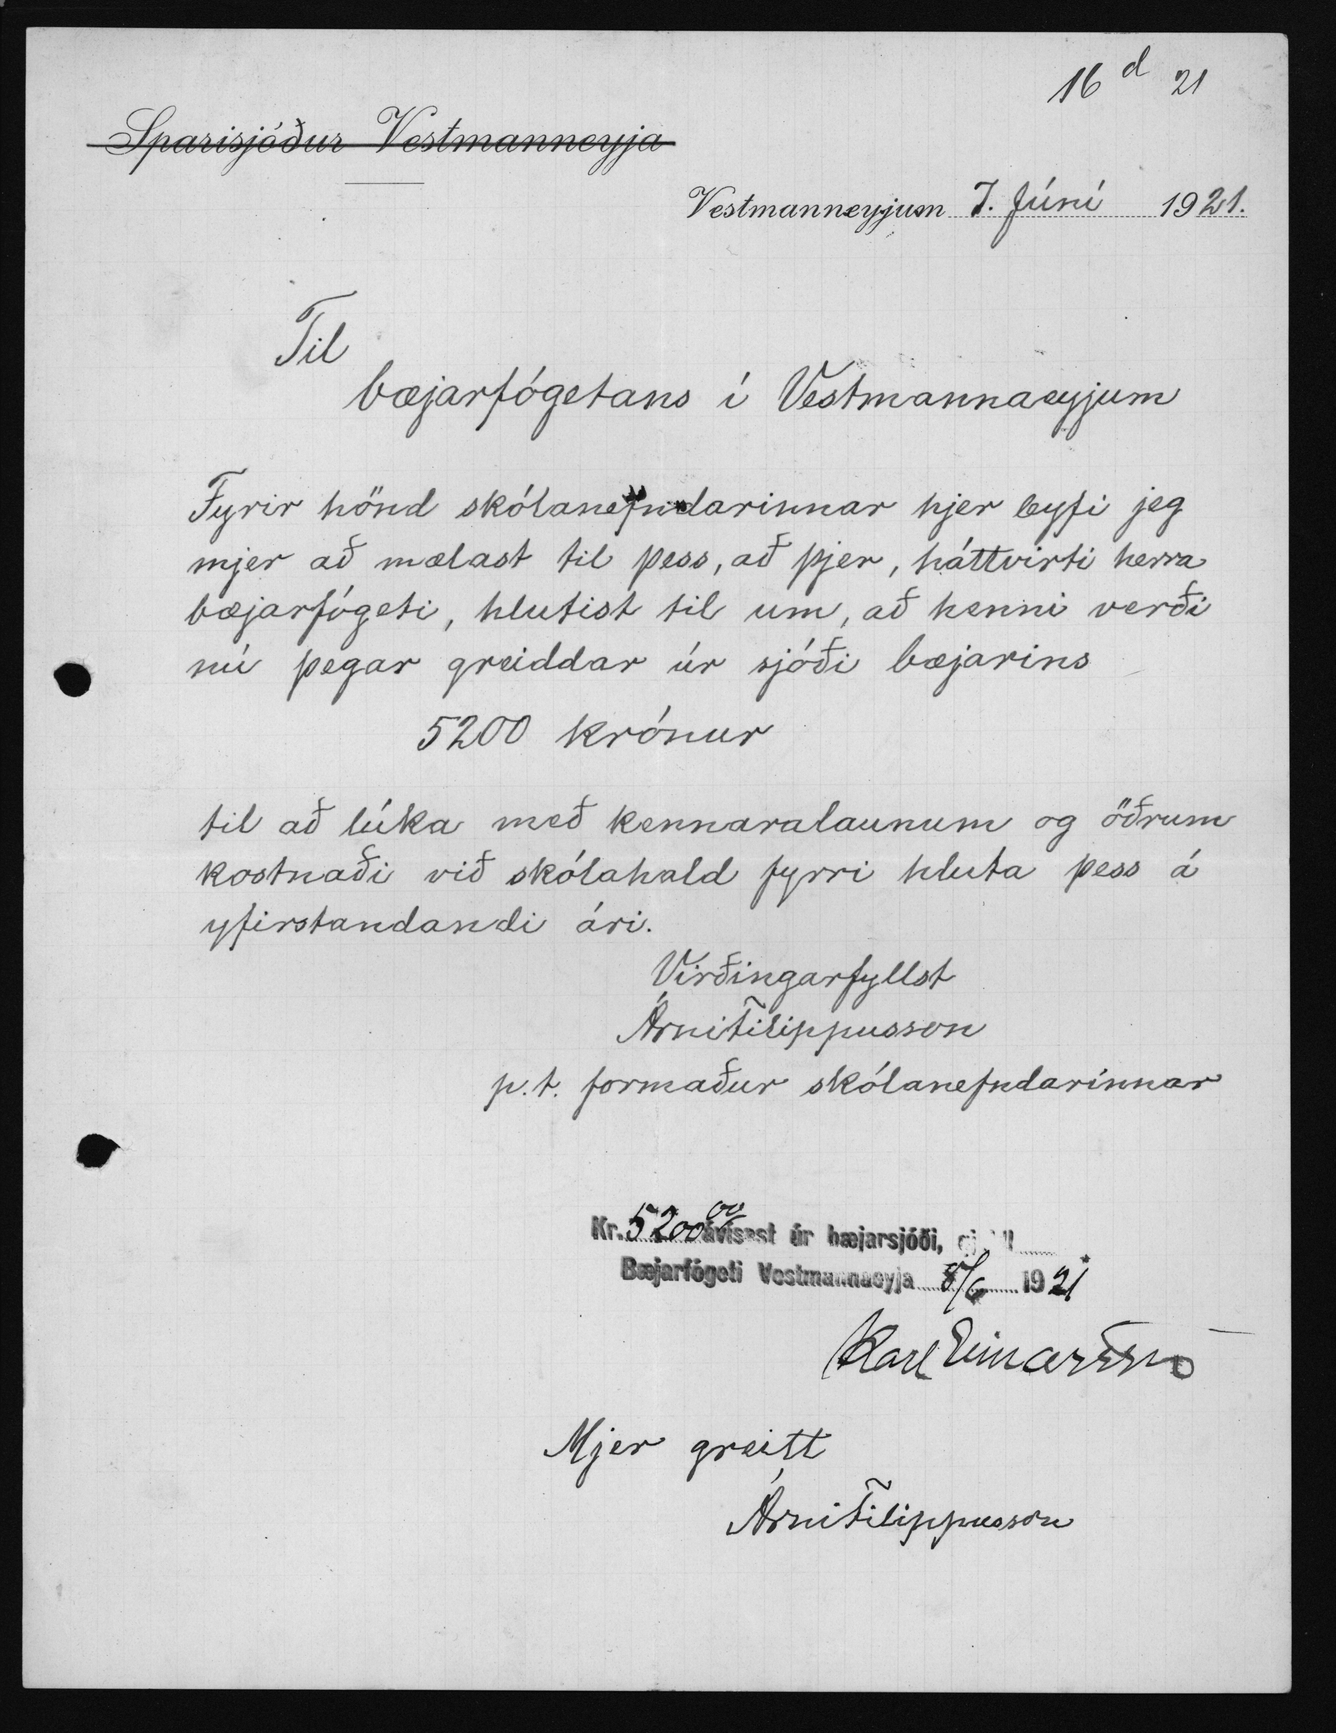 16 d 21
Sparisjóður Vestmanneyja
Vestmanneyjum 7. Júní 1921.
Til
bæjarfógetans í Vestmannaeyjum
Fyrir hönd skólanefndarinnar hjer leyfi jeg
mjer að mælast til þess, að þjer, háttvirti herra
bæjarfógeti, hlutist til um, að henni verði
nú þegar greiddar úr sjóði bæjarins
5200 krónur
til að lúka með kennaralaunum og öðrum
kostnaði við skólahald fyrri hluta þess á
yfirstandandi ári.
Virðingarfyllst
Árni Filippusson
p.t. formaður skólanefndarinnar
Kr. 5200 00 ávísast úr bæjarsjóði,
Bæjarfógeti Vestmannaeyja 8/6 1921
Karl Einarsson
Mjer greitt
Árni Filippusson